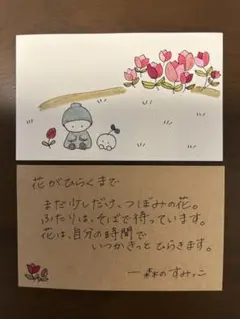 花がひらくまで
まだ少しだけ、つぼみの花。
ふたりは、そばで待っています。
花は、自分の時間で
いつかきっとひらきます。
—森のすみっこ